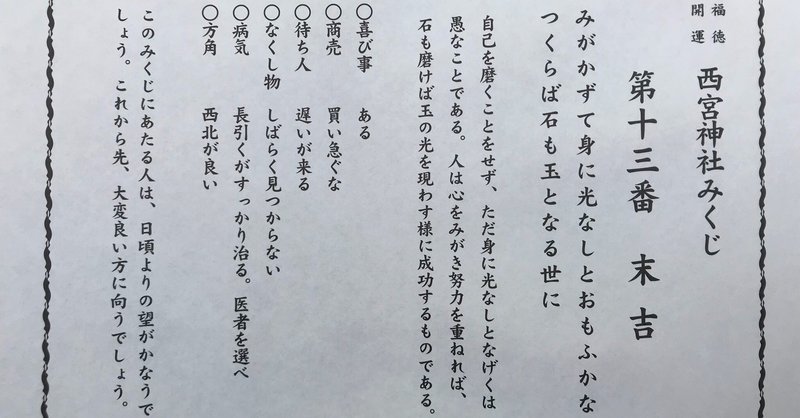 福徳
開運
西宮神社みくじ
第十三番 末吉
みがかずて身に光なしとおもふかな
つくらば石も玉となる世に
自己を磨くことをせず、ただ身に光なしとなげくは
愚なことである。人は心をみがき努力を重ねれば、
石も磨けば玉の光を現わす様に成功するものである。
〇喜び事 ある
〇商売 買い急ぐな
〇待ち人 遅いが来る
〇なくし物 しばらく見つからない
〇病気 長引くがすっかり治る。医者を選べ
〇方角 西北が良い
このみくじにあたる人は、日頃よりの望がかなうで
しょう。これから先、大変良い方に向うでしょう。